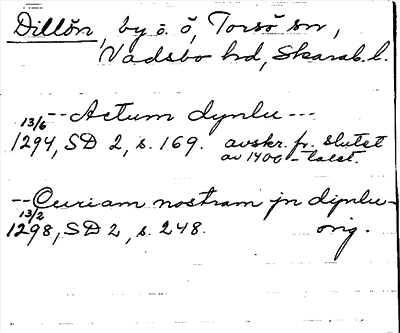 Dillön, by o. ö, Torsö sn,
Vadsbo hd, Skarab. l.
-- Actum dynlu ---
13/6
1294, SD 2, s. 169. avskr. fr. slutet
av 1400-talet.
-- Curiam nostram jn dijnlu-
13/2
1298, SD 2, s. 248. orig.